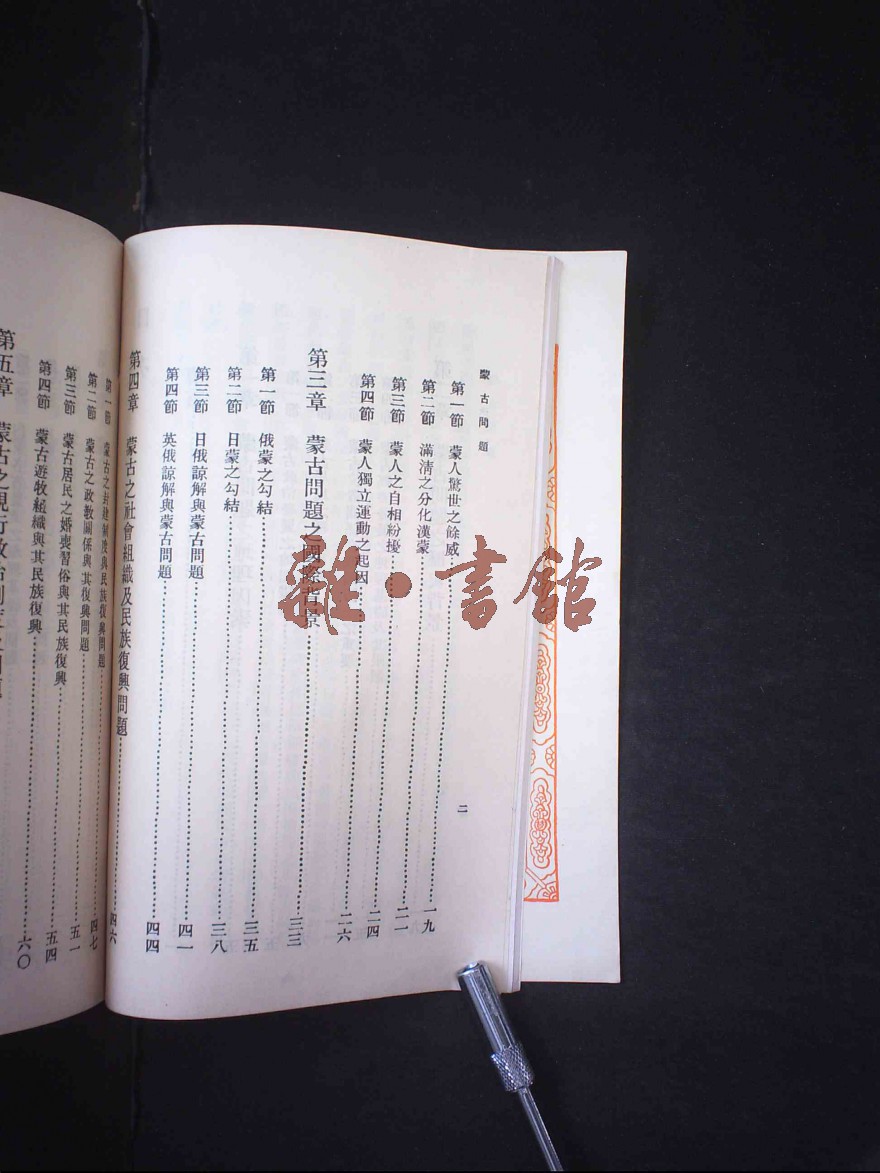 蒙古問題
第一節 蒙人驚世之餘威 一九
第二節 滿淸之分化漢蒙 二一
第三節 蒙人之自相紛擾 二四
第四節 蒙人獨立運動之起因 二六
第三章 蒙古問題之國際背景 三三
第一節 俄蒙之勾結 三五
第二節 日蒙之勾結 三八
第三節 日俄諒解與蒙古問題 四一
第四節 英俄諒解與蒙古問題 四四
二
第四章 蒙古之社會組織及民族復興問題 四六
第一節 蒙古之封建制度與民族復興問題
第二節 蒙古之政教關係與其復興問題 四七
第三節 蒙古居民之婚喪習俗與其民族復興 五一
第四節 蒙古遊牧組織與其民族復興 五四
第五章 蒙古之現行政治制度 六〇
雜·書館